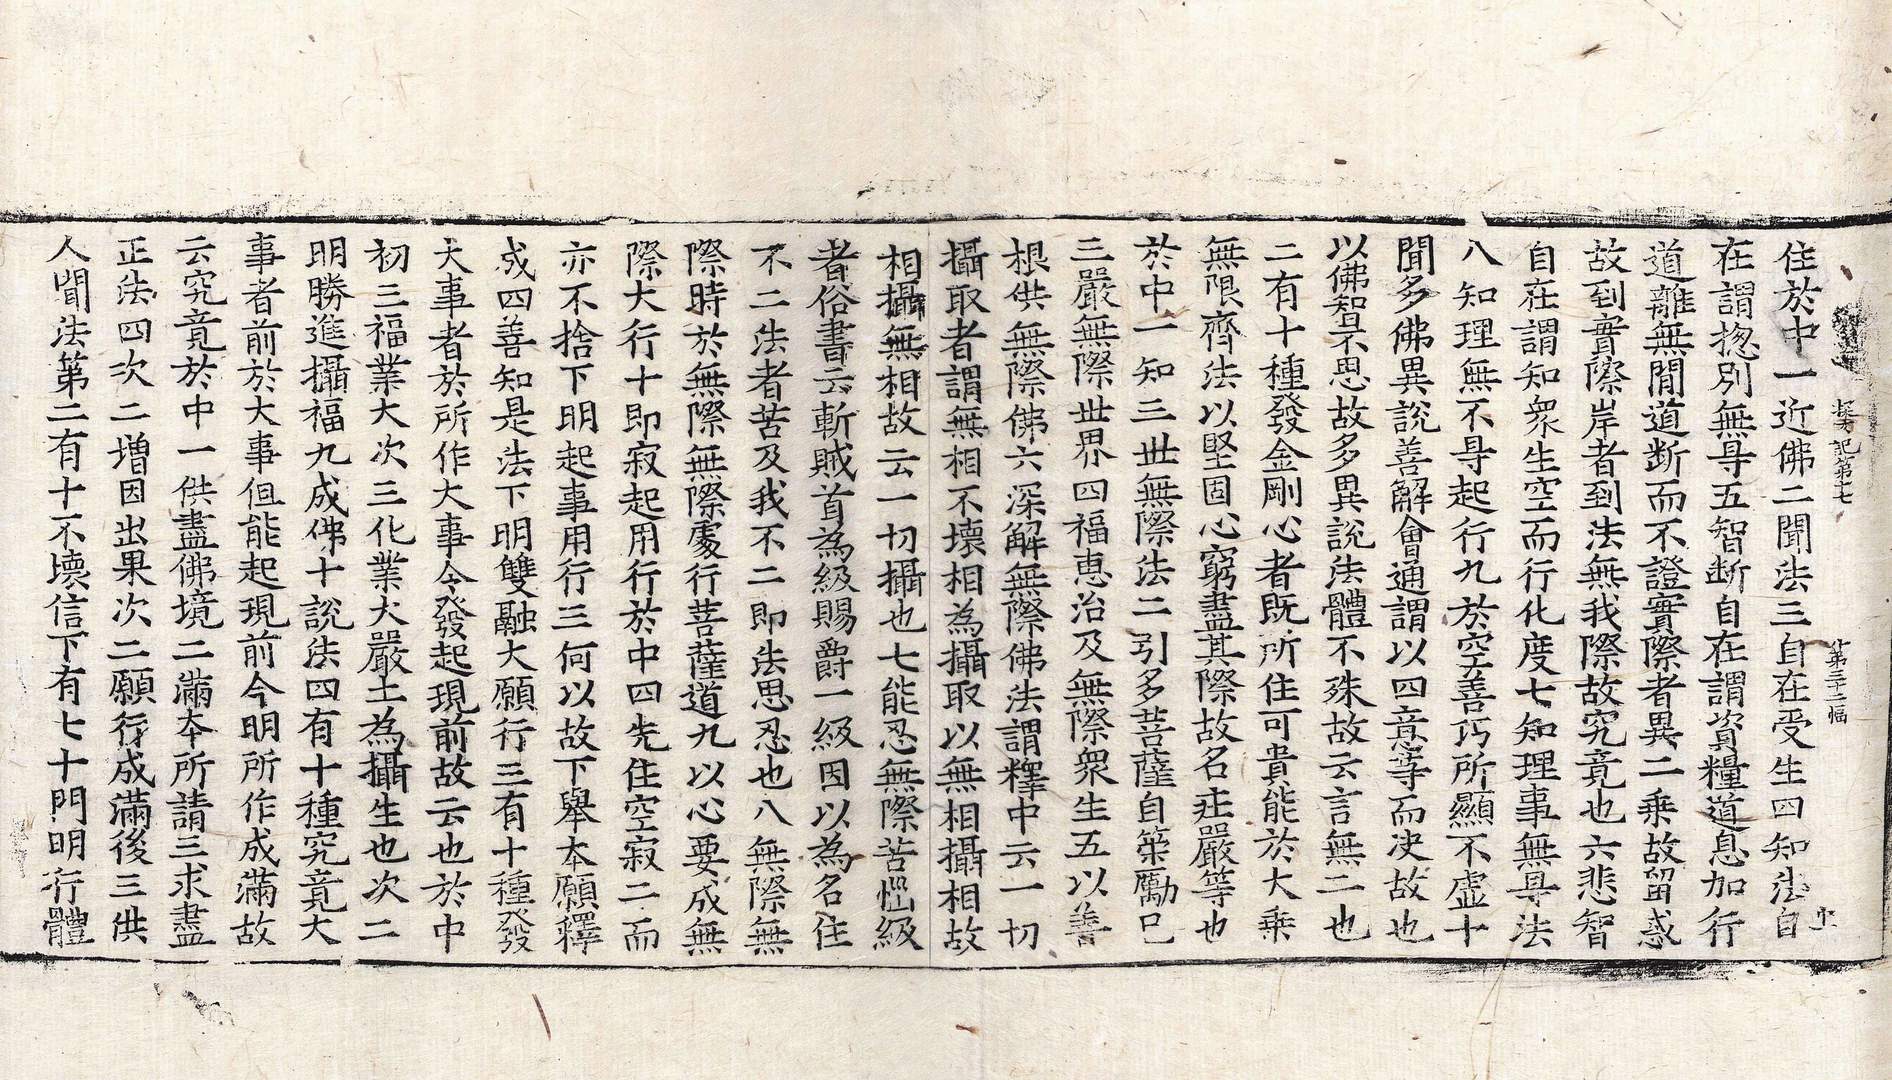 探玄記第七 第三十二幅
住於中一近佛二聞法三自在受生四知法自
在謂揔別無㝵五智断自在謂資糧道息加行
道離無間道断而不證實際者異二乗故留惑
故到實際岸者到法無我際故究竟也六悲智
自在謂知衆生空而行化度七知理事無㝵法
八知理無不㝵起行九於空善巧所顯不虚十
聞多佛異說善解會通謂以四意等而决故也
以佛智不思故多異說法體不殊故云言無二也
二有十種發金剛心者既所住可貴能於大乗
無限齊法以堅固心窮盡其際故名莊嚴等也
於中一知三世無際法二引多菩薩自策勵已
三嚴無際世界四福恵治及無際衆生五以善
根供無際佛六深解無際佛法謂釋中云一切
攝取者謂無相不壊相為攝取以無相攝相故
相攝無相故云一切攝也七能忍無際苦惱級
者俗書云斬賊首為級賜爵一級因以為名住
不二法者苦及我不二即法思忍也八無際無
際時於無際無際處行菩薩道九以心要成無
際大行十即寂起用行於中四先住空寂二而
亦不捨下明起事用行三何以故下舉本願釋
成四善知是法下明雙融大願行三有十種發
大事者於所作大事今發起現前故云也於中
初三福業大次三化業大嚴土為攝生也次二
明勝進攝福九成佛十說法四有十種究竟大
事者前於大事但能起現前今明所作成滿故
云究竟於中一供盡佛境二滿本所請三求盡
正法四次二增因出果次二願行成滿後三供
人聞法第二有十不壊信下有七十門明行體